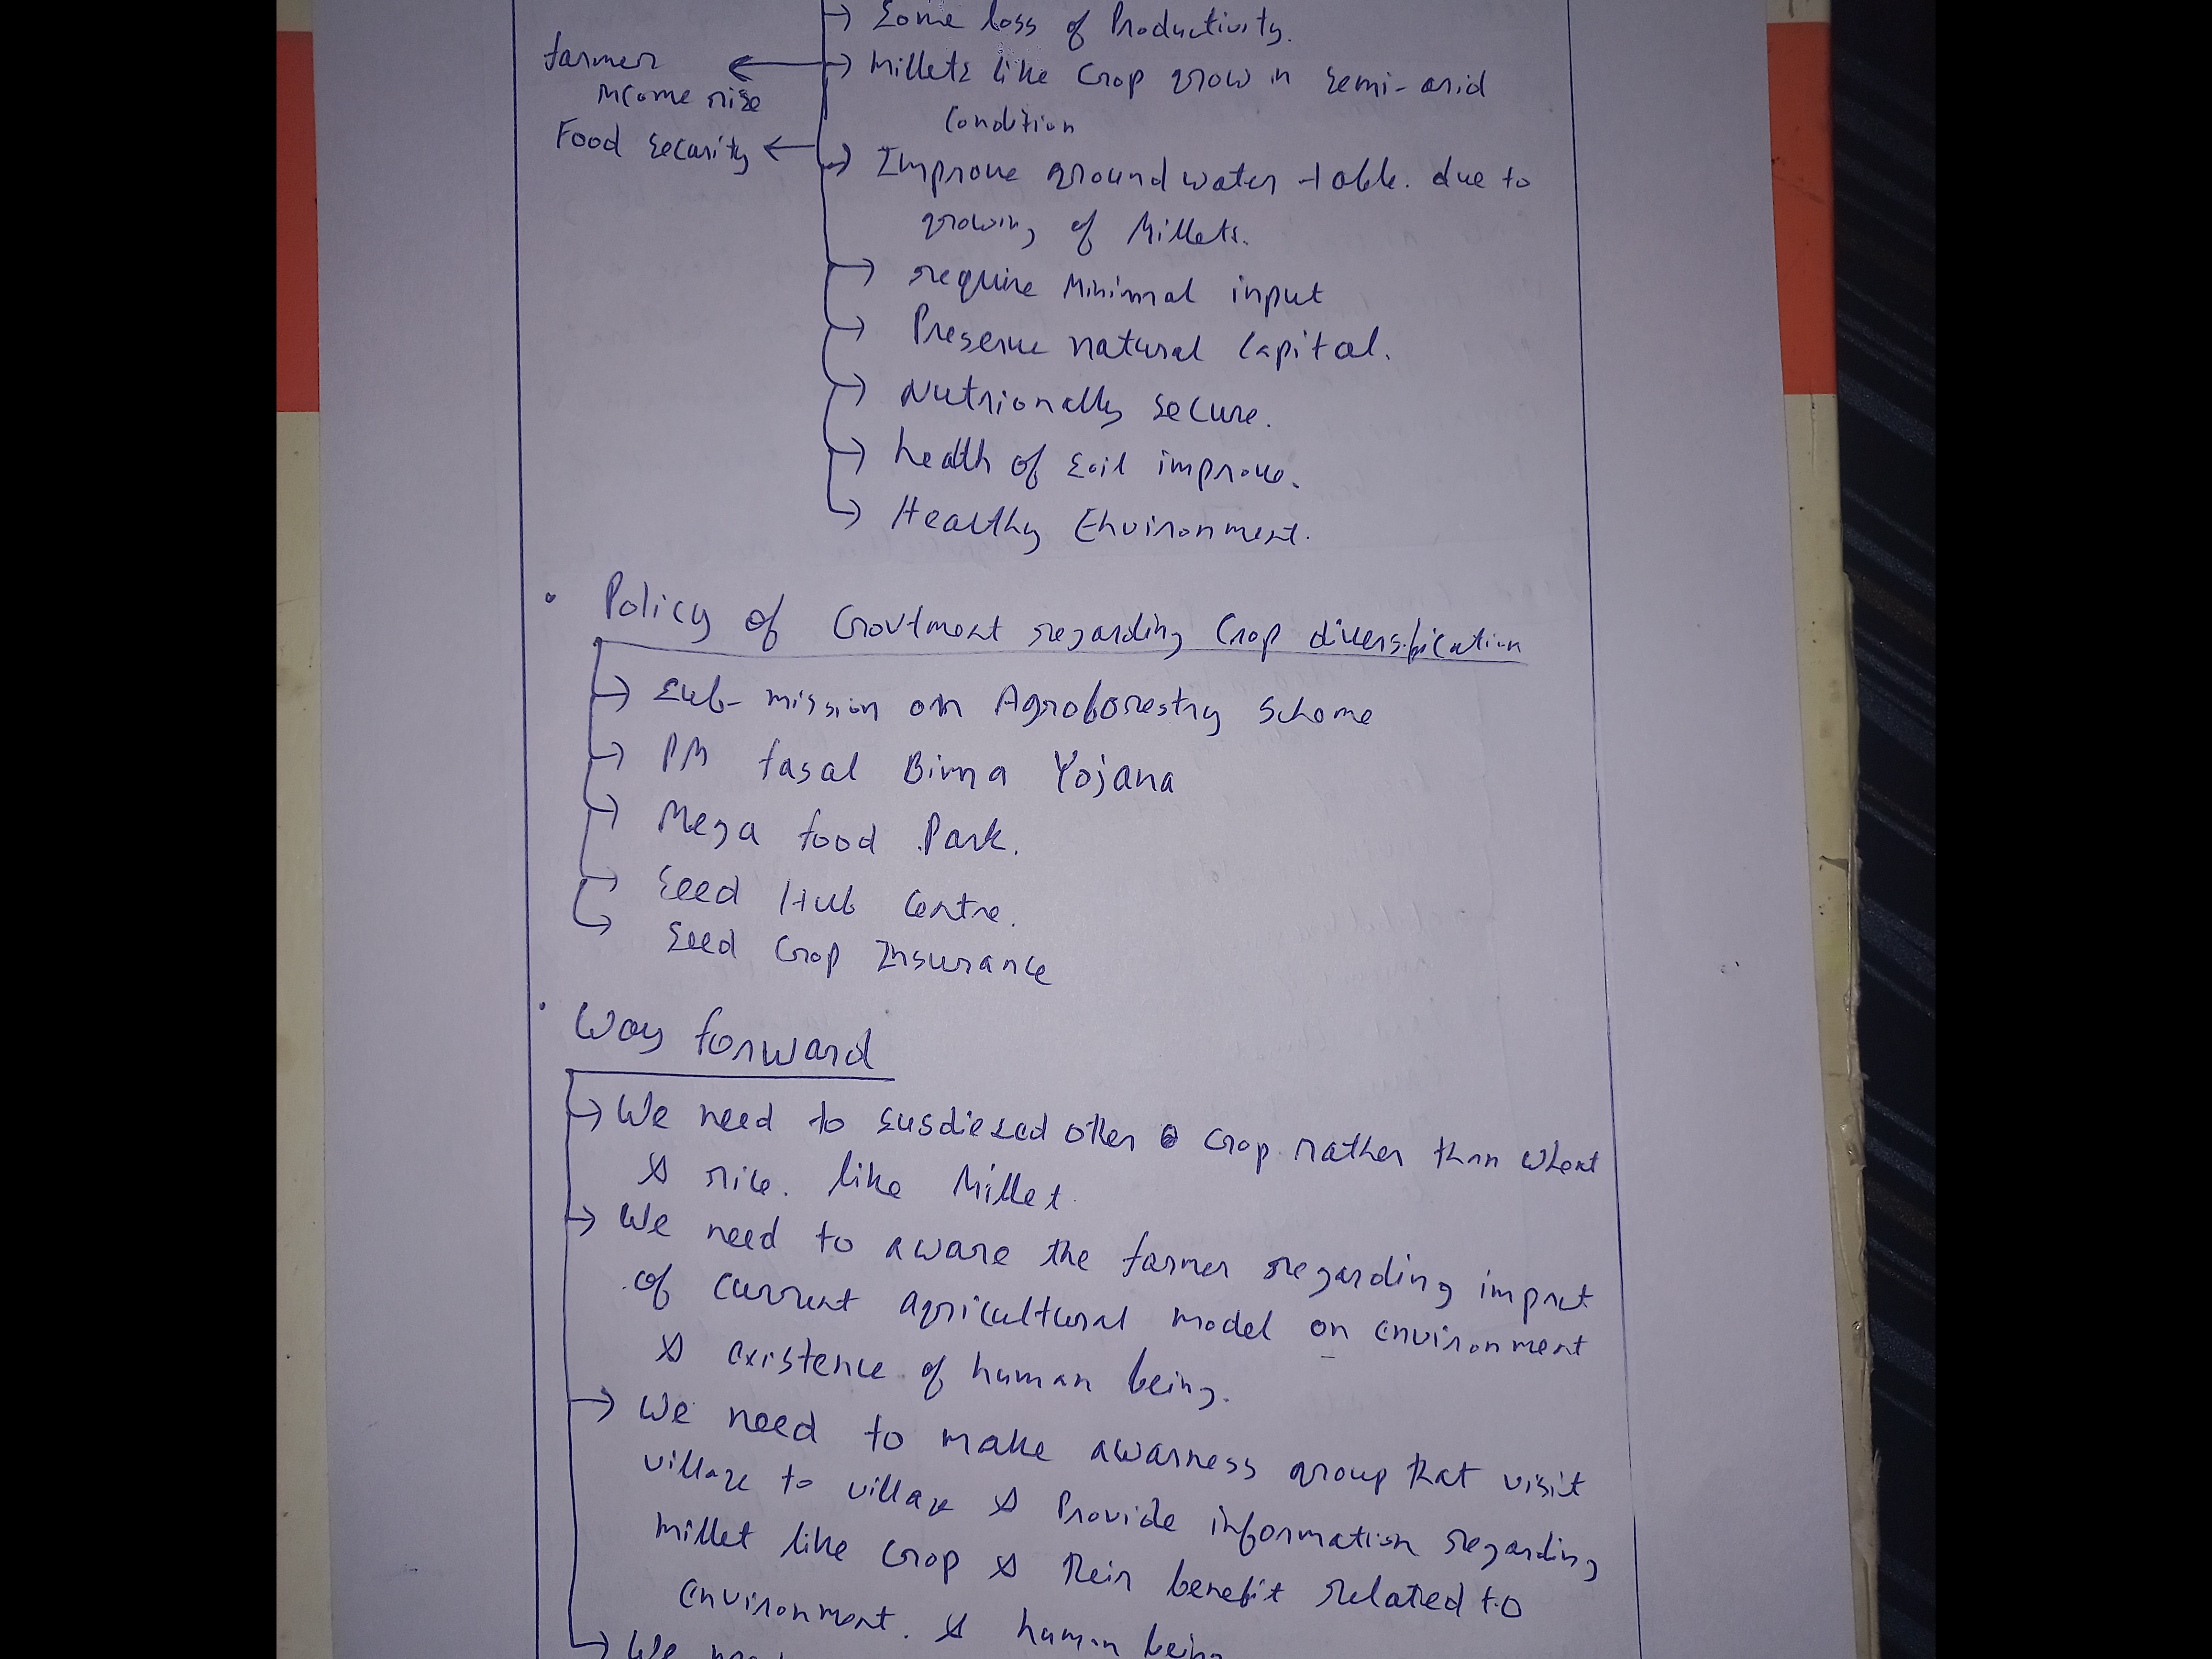 Some loss of Productivity.
farmer income rise
Millets like Crop grow in semi-arid
Condition
Food security
Improve ground water table. due to
growing of Millets.
require Minimal input
Preserve natural Capital.
Nutrionally secure.
health of soil improve.
Healthy Environment.
• Policy of Govtment regarding Crop diversification
Sub-mission on Agroforestry Scheme
PM fasal Bima Yojana
Mega food Park.
Seed Hub Centre.
Seed Crop Insurance
• Way forward
We need to other Crop rather than wheat
& rice. like Millet.
We need to aware the farmer regarding impact
of current agricultural model on environment
& existence of human being.
We need to make awarness group that visit
village to village & Provide information regarding
millet like Crop & their benefit related to
environment. & human being
We need